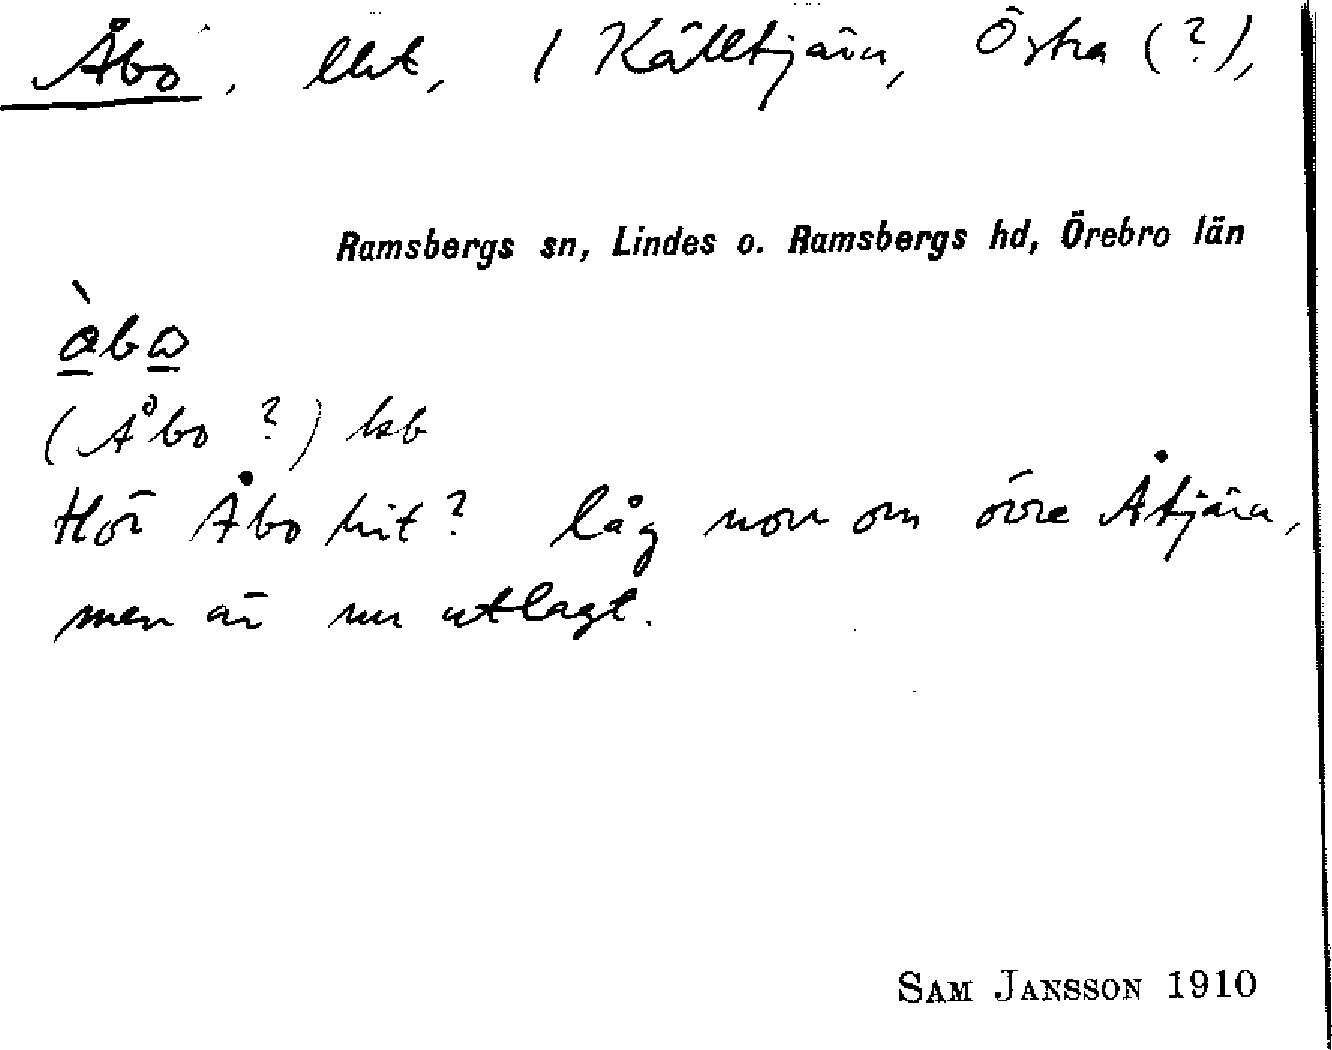 Åbo, lht, / Källtjärn, Östra (?),
Ramsbergs sn, Lindes o. Ramsbergs hd, Örebro län
(Åbo ?) ksb
Hör Åbo hit? låg norr om övre Åtjärn,
men är nu utlagt.
SAM JANSSON 1910